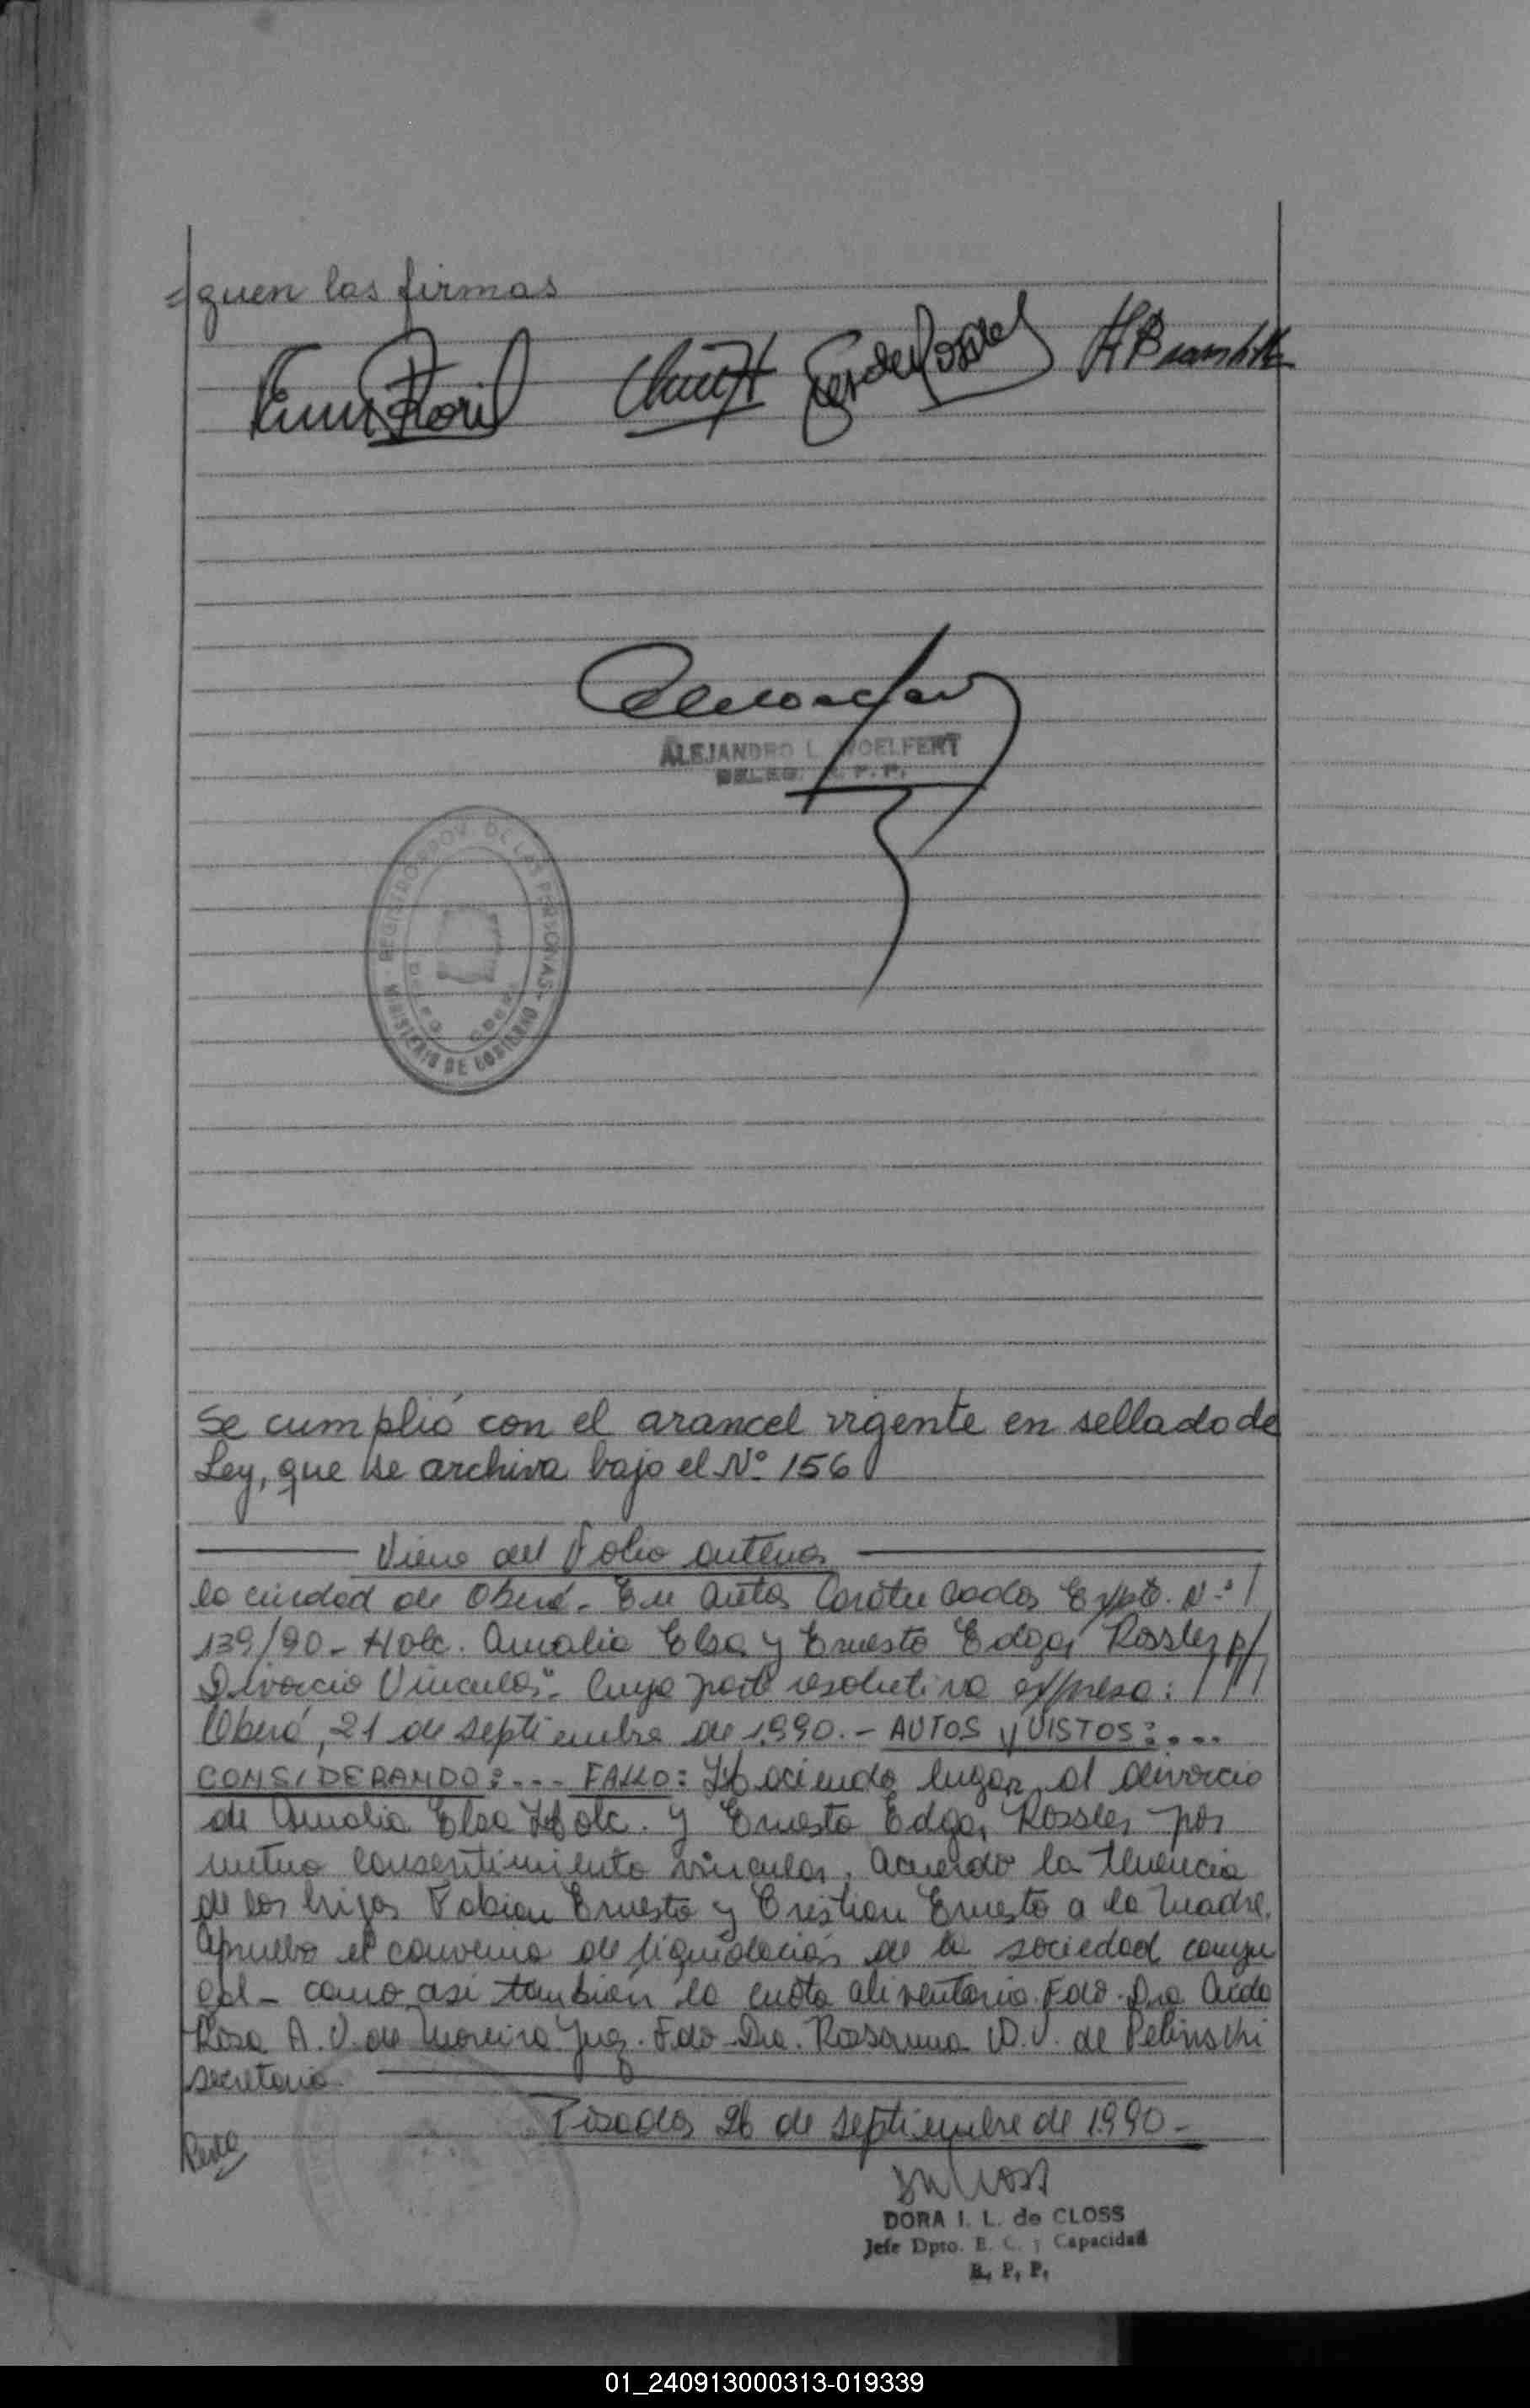 =guen las firmas
ALEJANDRO L. WOELFERT
DELEG. R. P. P.
REGISTRO PROV. DE LAS PERSONAS
MINISTERIO DE GOBIERNO
Se cumplió con el arancel vigente en sellado de
Ley, que se archiva bajo el Nº 156
Viene del Folio anterior
la ciudad de Oberá.- En autos Caratulados Expte. Nº /
139/90 - Holc. Amalia Elsa y Ernesto Edgar Rossler p/
Divorcio Vincular". Cuya parte resolutiva expresa: ///
Oberá, 21 de septiembre de 1.990.- AUTOS y VISTOS:....
CONSIDERANDO:... FALLO: Haciendo lugar al divorcio
de Amalia Elsa Holc. y Ernesto Edgar Rossler por
mutuo consentimiento vincular. Acuerdo la tenencia
de los hijos Fabian Ernesto y Cristian Ernesto a la Madre.
Apruebo el convenio de liquidación de la sociedad conyu
gal - como así también la cuota alimentaria. Fdo. Dra. Aida
Rosa A. V. de Moreira Juez. Fdo-Dra. Rosanna D. V. de Pelinski
secretaria.
Posadas 26 de septiembre de 1.990.-
DORA I. L. de CLOSS
Jefe Dpto. E. C. y Capacidad
R. P. P.
01_240913000313-019339